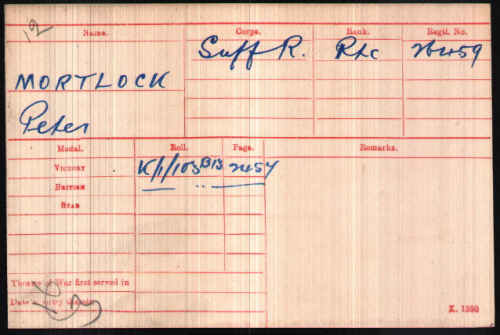 12
Name. Corps. Rank. Regtl. No.
Suff R. Pte 26459
MORTLOCK
Peter
Medal. Roll. Page. Remarks.
VICTORY K/1/103B13 2457
BRITISH " "
STAR
Theatre of War first served in
Date of entry therein
K. 1380